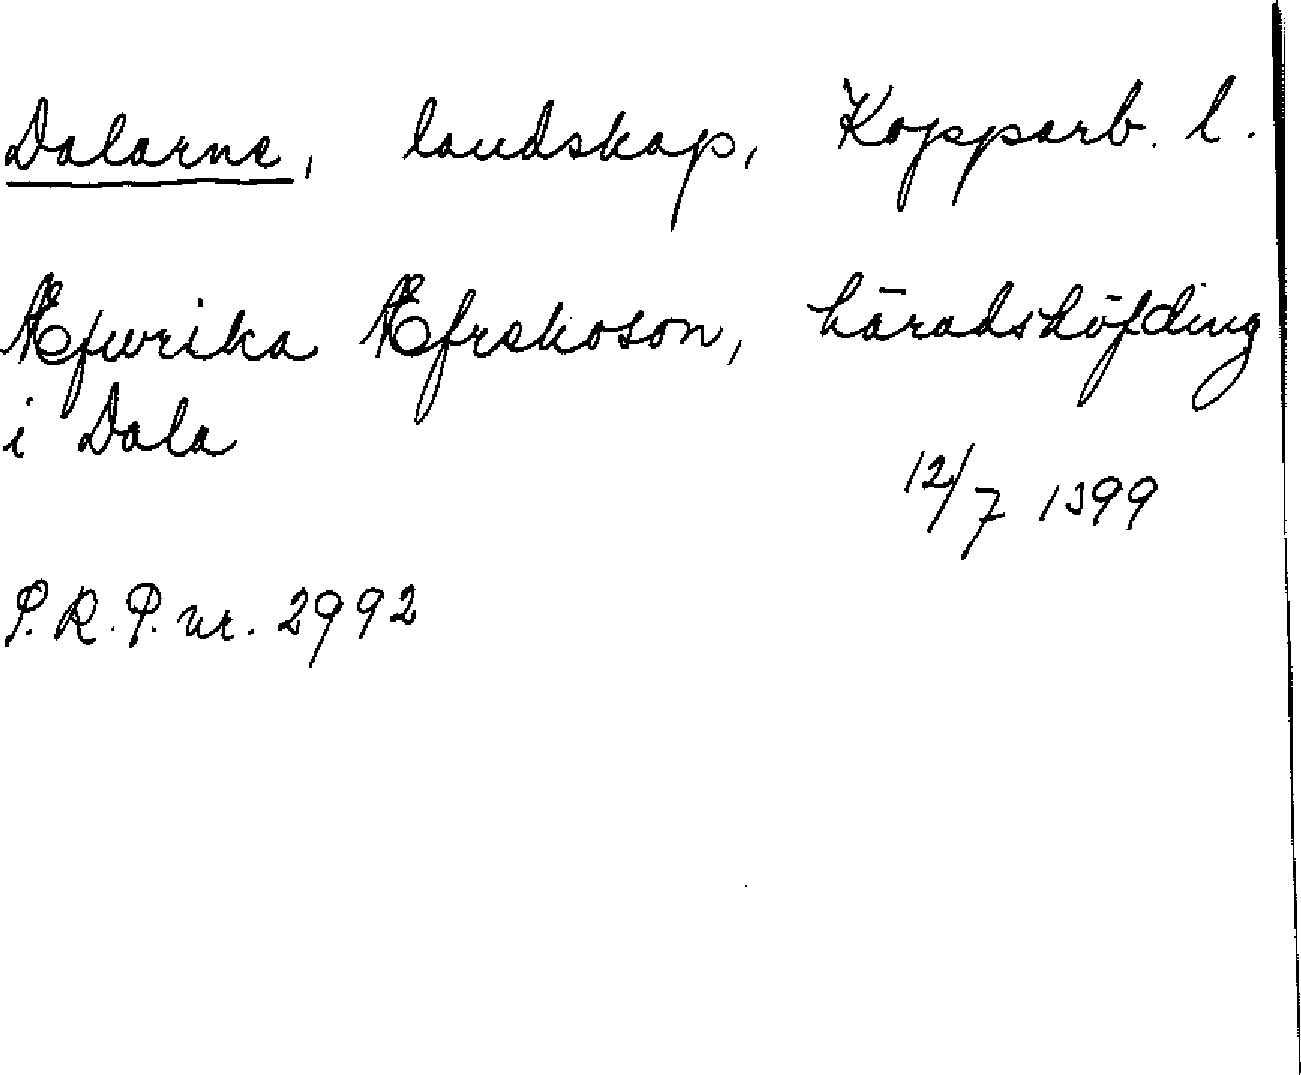 Dalarne, landskap, Kopparb. l.
Æfwrika Æfrskoson, häradshöfding
i Dala
12/7 1399
P.R.P. nr. 2992